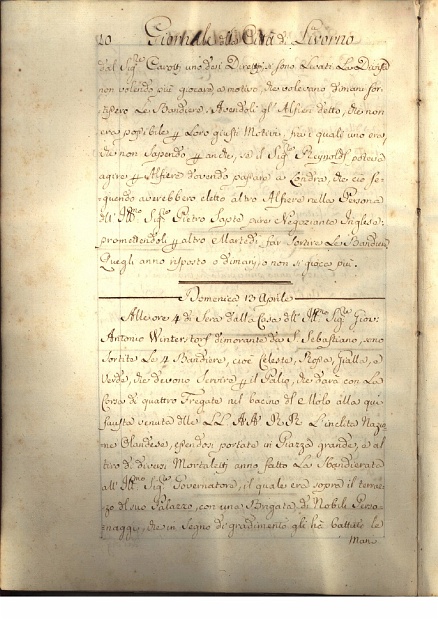 20 Giornale della Città di Livorno
dal Sig.re Carotti uno dei Direttori si sono levati La Dianza
non volendo più giocare a motivo, che volevano dimani sor-
tissero Le Bandiere. Avendoli gl' Alfieri detto, che non
era possibile p Loro giusti Motivi, fra' quali uno era,
che non sapendo p anche, se il Sig.re Reynolds poteva
agire p Alfiere dovendo passare a Londra, che ciò se-
guendo averebbero eletto altro Alfiere nella Persona
dell' Ill.mo Sig.re Pietro Sapte pure Negoziante Inglese:
promettendoli p altro Martedì far sortire Le Bandiere
Quegli anno risposto o dimani, o non si gioca più.
Domenica 13 Aprile
Alle ore 4 di Sera dalla Casa dell' Ill.mo Sig.re Giov:
Antonio Winterstorf dimorante da S. Sebastiano, sono
sortite Le 4 Bandiere, cioè Celeste, Rossa, Gialla, e
Verde, che devono servire p il Palio, che darà con La
Corsa di quattro Fregate nel bacino del Molo alla qui
fausta venuta delle LL. AA. RR. L'inclita Nazio-
ne Olandese, essendosi portate in Piazza grande, e al
tiro di diversi Mortaletti anno fatto La Bandierata
all' Ill.mo Sig.re Governatore, il quale era sopra il terraz-
zo del suo Palazzo, con una Brigata di Nobili Perso-
naggi, che in segno di gradimento gli hà battute le
Man-